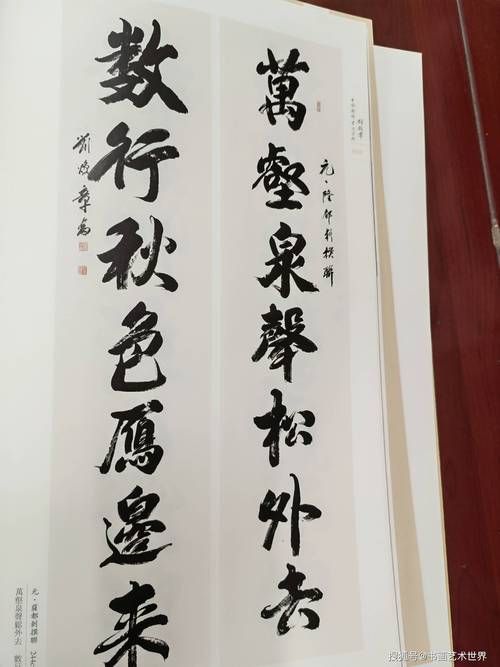 萬壑泉聲松外去
元·薩都剌撰聯
数行秋色雁邊来
刘炳森書
元·薩都剌撰聯 244
萬壑泉聲松外去 數
搜狐号@书画艺术世界